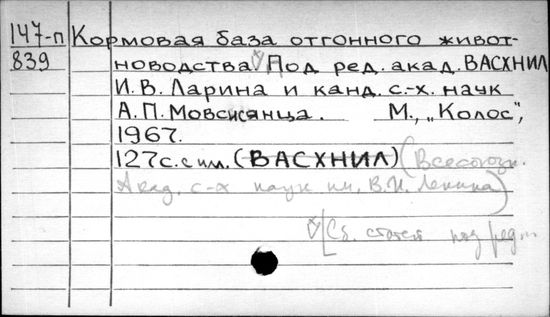 147-п Кормовая база отгонного живот-
839 новодства. Под ред. акад. ВАСХНИЛ
И.В. Ларина и канд. с.-х. наук
А.П. Мовсисянца. М., „Колос",
1967.
127с. с ил. (ВАСХНИЛ) (Всесоюзн.
Акад. с-х наук им. В.И. Ленина)
[Сб. статей под ред...